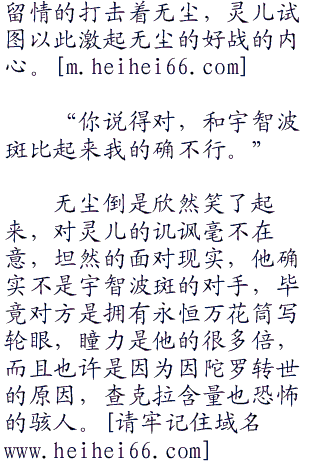 留情的打击着无尘，灵儿试
图以此激起无尘的好战的内
心。[m.heihei66.com]
“你说得对，和宇智波
斑比起来我的确不行。”
无尘倒是欣然笑了起
来，对灵儿的讥讽毫不在
意，坦然的面对现实，他确
实不是宇智波斑的对手，毕
竟对方是拥有永恒万花筒写
轮眼，瞳力是他的很多倍，
而且也许是因为因陀罗转世
的原因，查克拉含量也恐怖
的骇人。[请牢记住域名
www.heihei66.com]